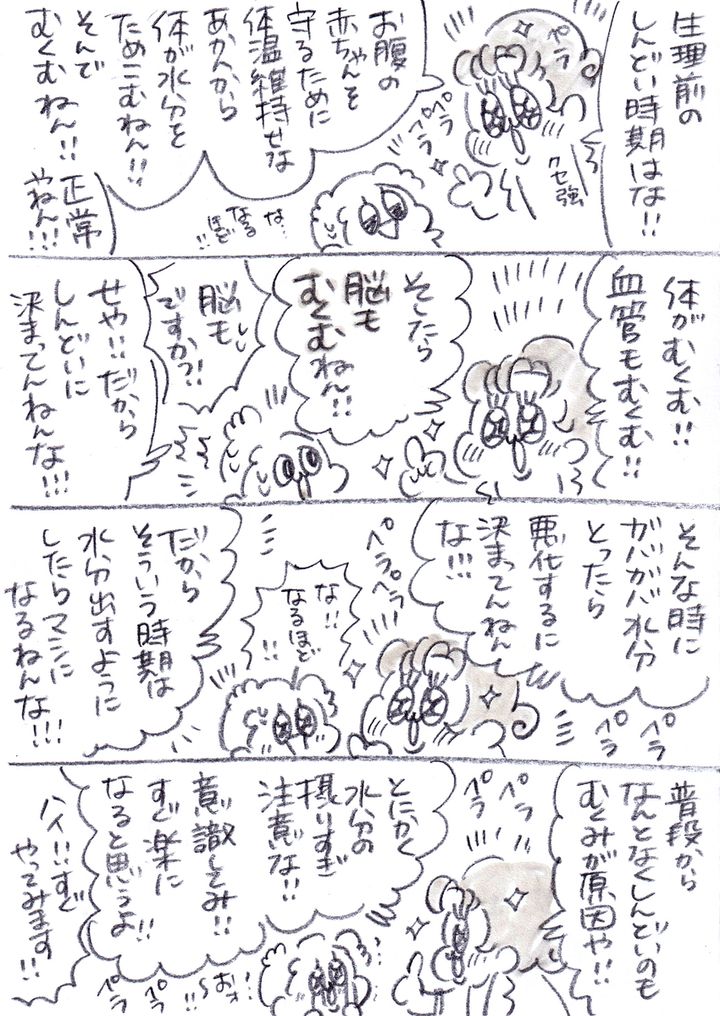 生理前の
しんどい時期はな!!
ペラ
クセ強
ペラ
ペラ
お腹の
赤ちゃんを
守るために
体温維持せな
あかんから
体が水分を
ためこむねん!!
そんで
むくむねん!!
正常
やねん!!!
な…
なる
ほど
!!
体がむくむ!!
血管もむくむ!!
そしたら
脳も
むくむねん!!
脳も
ですかっ!!
せや!!だから
しんどいに
決まってんねんな!!!
そんな時に
ガバガバ水分
とったら
悪化するに
決まってんねん
な!!!
ペラ
ペラ
ペラペラ
な!!
なるほど
!!
だから
そういう時期は
水分出すように
したらマシに
なるねんな!!!
普段から
なんとなくしんどいのも
むくみが原因や!!
ペラ
ペラ
とにかく
水分の
摂りすぎ
注意な!!
意識してみ!!
すぐ楽に
なると思うよ!!
ペラ
ペラ
おォ
〜!!
ハイ!!すぐ
やってみます
!!